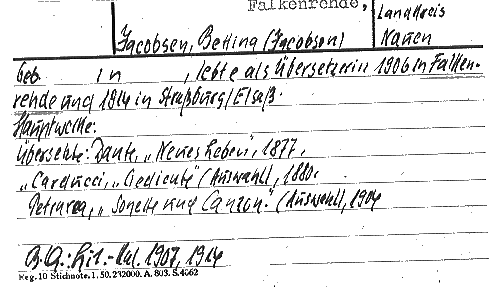 Falkenrehde,
Landkreis
Jacobsen, Bettina (Jacobson) Nauen
geb. in , lebte als Übersetzerin 1906 in Falken-
rehde und 1914 in Straßburg/Elsaß.
Hauptwerke:
Übersetzte: Dante, „Neues Leben", 1877.
„ Carducci, „Gedichte" (Auswahl), 1880.
Petrarca, „Sonette und Canzon." (Auswahl, 1904
B.Q.: Lit.-Kal. 1907, 1914
Reg. 10 Stichnote. 1. 50. 232000. A. 803. S. 4662